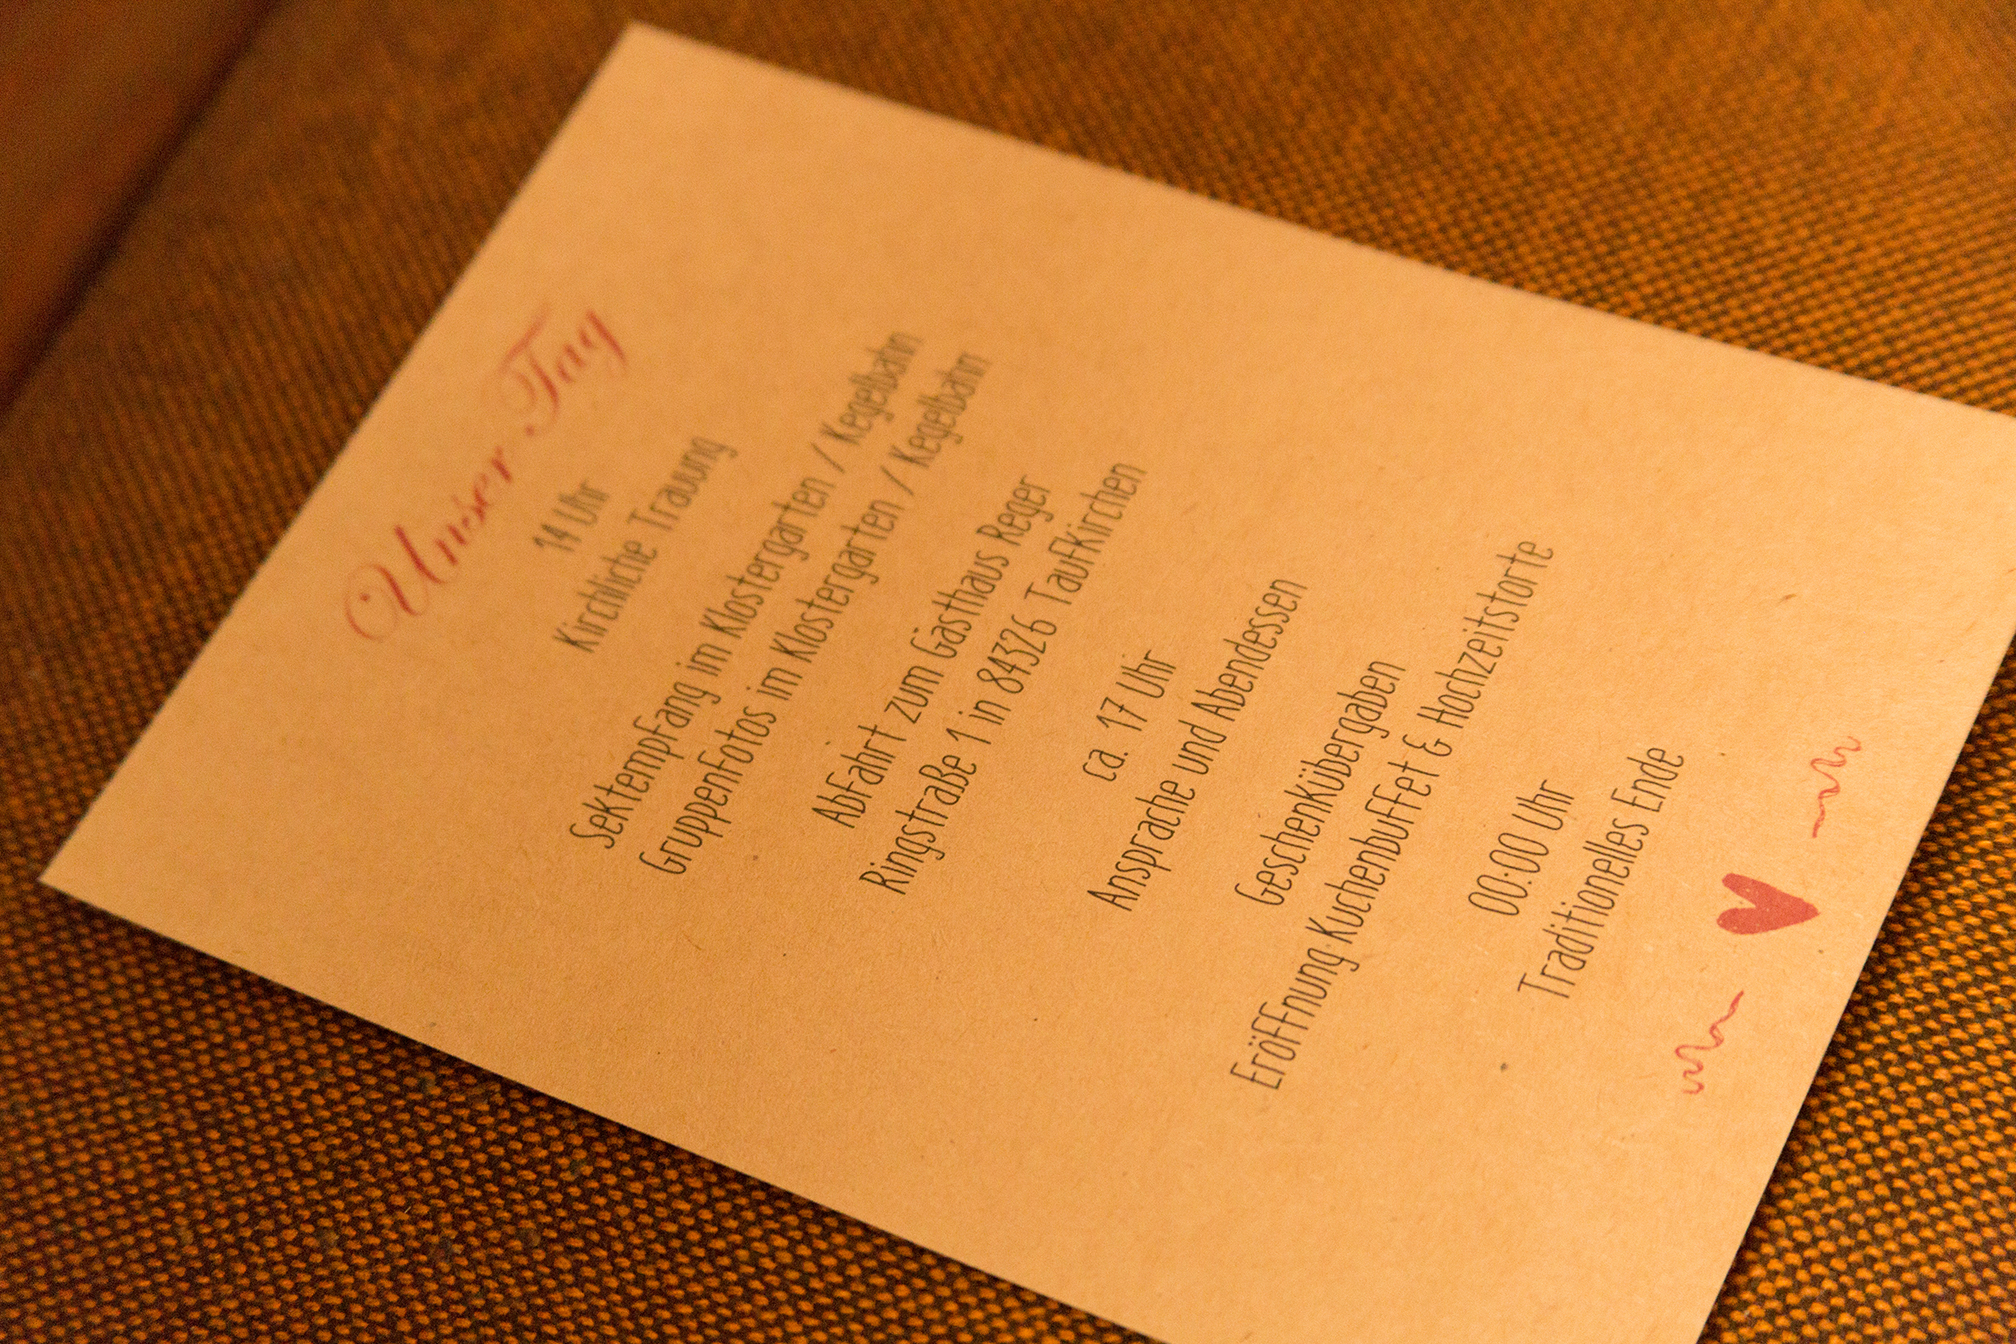 Unser Tag
14 Uhr
Kirchliche Trauung
Sektempfang im Klostergarten / Kegelbahn
Gruppenfotos im Klostergarten / Kegelbahn
Abfahrt zum Gasthaus Reger
Ringstraße 1 in 84326 Taufkirchen
ca. 17 Uhr
Ansprache und Abendessen
Geschenkübergaben
Eröffnung Kuchenbuffet & Hochzeitstorte
00:00 Uhr
Traditionelles Ende